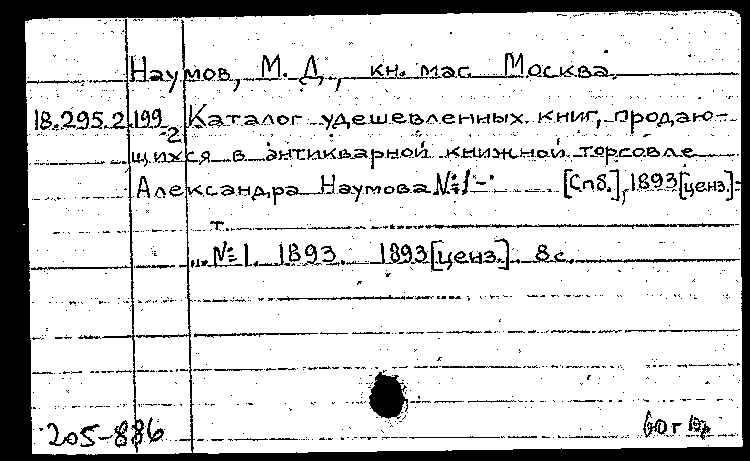 Наумов, М. Д., кн. маг. Москва.
18.295.2.199 Каталог удешевленных книг, продаю-
2
щихся в антикварной книжной торговле
Александра Наумова №1- [Спб.], 1893[ценз.]-
т.
„. №1. 1893. 1893[ценз.]. 8 с.
205-886